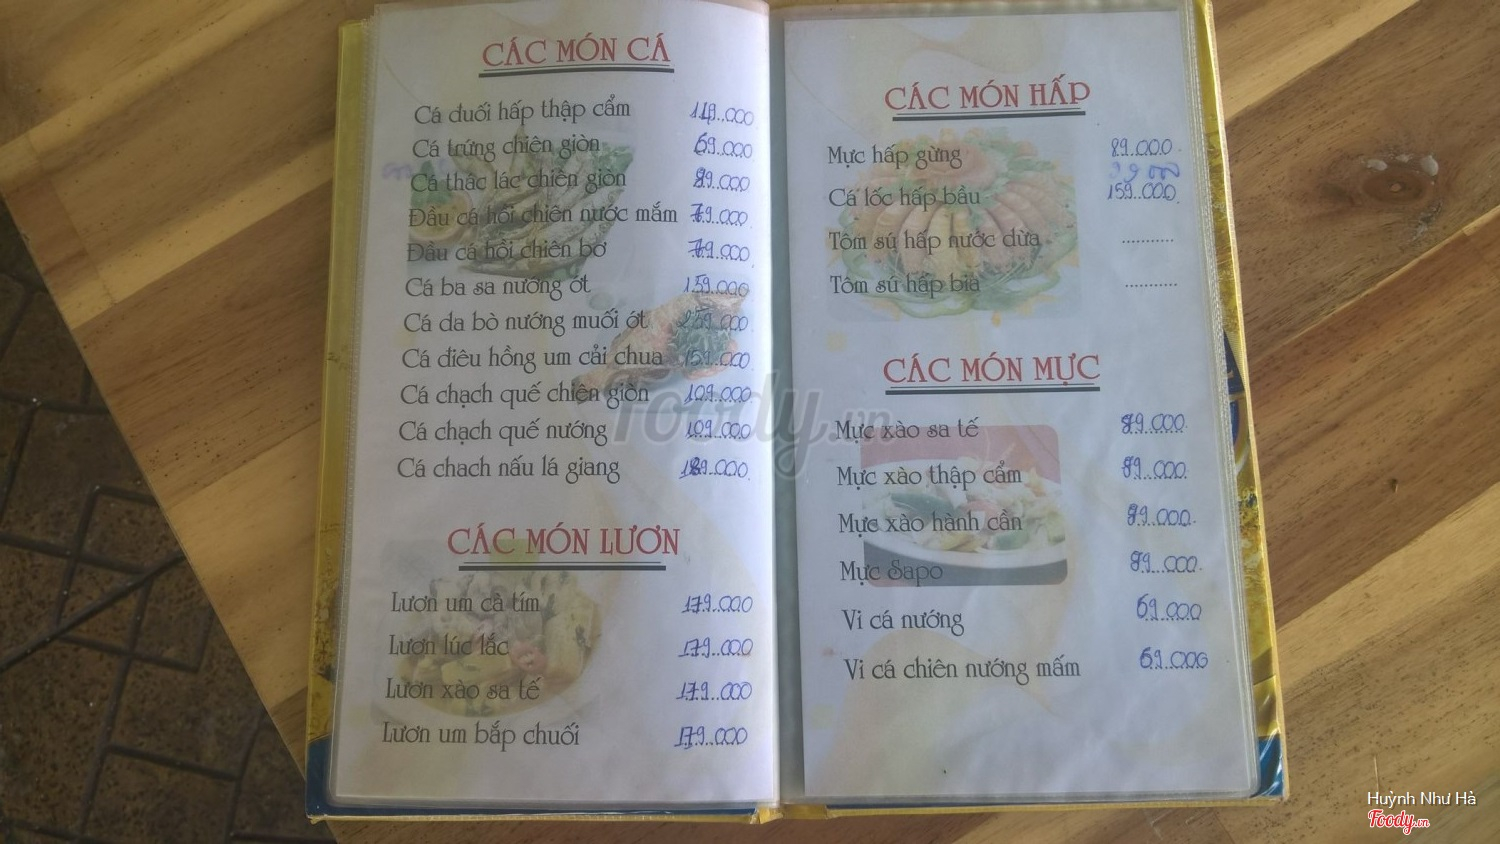 CÁC MÓN CÁ
Cá đuối hấp thập cẩm 149.000
Cá trứng chiên giòn 69.000
Cá thác lác chiên giòn 89.000
Đầu cá hồi chiên nước mắm 79.000
Đầu cá hồi chiên bơ 79.000
Cá ba sa nướng ớt 159.000
Cá da bò nướng muối ớt 259.000
Cá diêu hồng um cải chua 159.000
Cá chạch quế chiên giòn 109.000
Cá chạch quế nướng 109.000
Cá chach nấu lá giang 189.000
CÁC MÓN LƯƠN
Lươn um cà tím 179.000
Lươn lúc lắc 179.000
Lươn xào sa tế 179.000
Lươn um bắp chuối 179.000
CÁC MÓN HẤP
Mực hấp gừng 89.000
Cá lốc hấp bầu 159.000
Tôm sú hấp nước dừa ...........
Tôm sú hấp bia ...........
CÁC MÓN MỰC
Mực xào sa tế 89.000
Mực xào thập cẩm 89.000
Mực xào hành cần 89.000
Mực Sapo 89.000
Vi cá nướng 69.000
Vi cá chiên nướng mấm 69.000
Foody.vn
Huỳnh Như Hà
Foody.vn